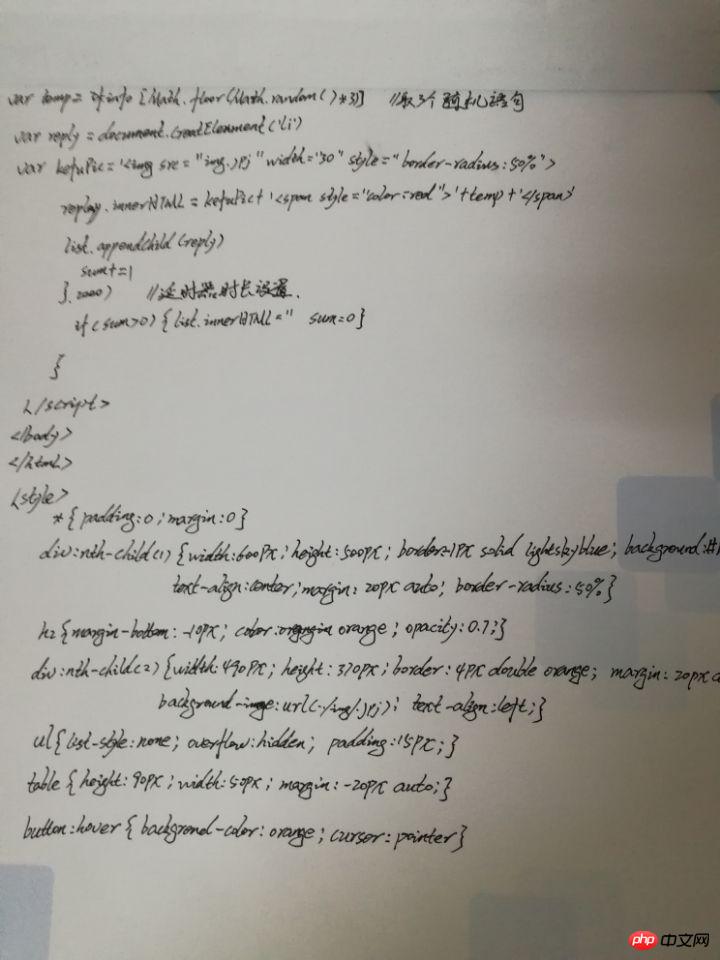 var temp = info [Math.floor(Math.random()*3)] //取3个随机语句
var reply = document.creatElenment('li')
var kefuPic = '<img src = "img.jpj" width='30' style="border-radius:50%">
replay.innerHTML = kefuPic + '<span style="color:red">'+temp+'</span>'
list.appendChild(reply)
sum+=1
}.2000) //延时器时长设置.
if(sum>0){list.innerHTML='' sum=0}
}
</script>
</body>
</html>
<style>
*{padding:0;margin:0}
div:nth-child(1) {width:600px; height:500px; border:1px solid lightskyblue; background:#
text-align:center; margin: 20px auto; border-radius:50%}
h2{margin-bottom:-10px; color: orange; opacity:0.7;}
div:nth-child(2) {width:490px; height:370px; border:4px double orange; margin:20px a
background-image:url(../img/.jpj); text-align:left;}
ul{list-style:none; overflow:hidden; padding:15px;}
table {height:90px; width:50px; margin:-20px auto;}
button:hover {backgrond-color: orange; cursor: pointer}
php 中文网